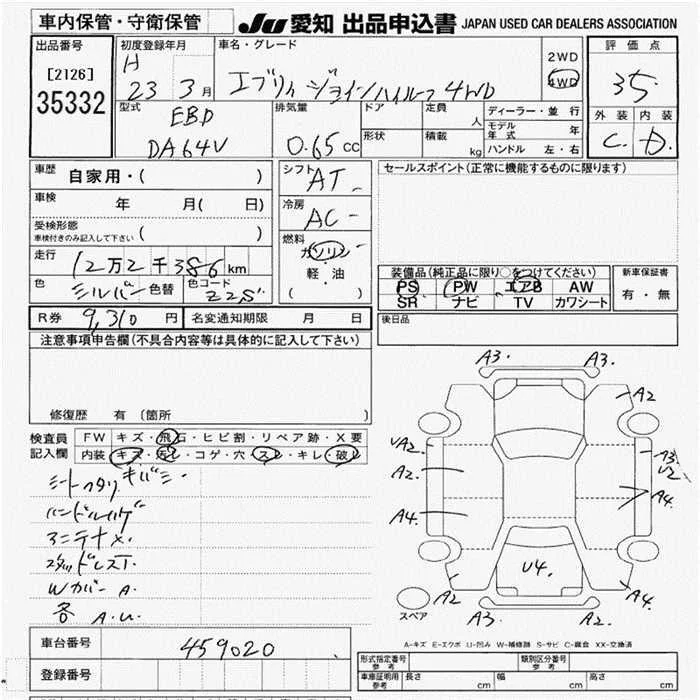 車内保管・守衛保管
JU 愛知 出品申込書 JAPAN USED CAR DEALERS ASSOCIATION
出品番号
[2126]
35332
初度登録年月
H
23 3月
車名・グレード
エブリィ ジョインハイルーフ 4WD
2WD
4WD
評価点
3.5
外装 内装
C. D.
型式
EBD
DA64V
排気量
0.65 cc
ドア
形状
定員 人
積載 kg
ディーラー・並行
モデル年式 年
ハンドル 左・右
車歴
自家用・( )
車検 年 月( 日)
受検形態
車検付きのみ記入して下さい ( )
走行
12万2千386km
色 シルバー 色替
色コード Z2S
シフト AT
冷房 AC
燃料
ガソリン
軽・油
( )
セールスポイント(正常に機能するものに限ります)
装備品(純正品に限り○をつけてください)
PS PW エアB AW
SR ナビ TV カワシート
新車保証書
有・無
R券 9,310 円
名変通知期限 月 日
後日品
注意事項申告欄(不具合内容等は具体的に記入して下さい)
修復歴 有 (箇所 )
検査員
記入欄
FW キズ・飛石・ヒビ割・リペア跡・X要
内装 キズ・汚レ・コゲ・穴・スレ・キレ・破レ
シートヘタリ
ハンドルハゲ
アンテナ×.
スタッドレスT.
Wカバー A.
各 A.U.
A3. A3.
A2
UA2
A2.
A4.
A3.
U2
A4.
U4.
A2
A2
A4.
スペア
A-キズ E-エクボ U-凹み W-補修跡 S-サビ C-腐食 XX-交換済
車台番号 459020
登録番号
形式指定番号 参考
類別区分番号 参考
車庫証明用 参考
長さ cm
幅 cm
高さ cm